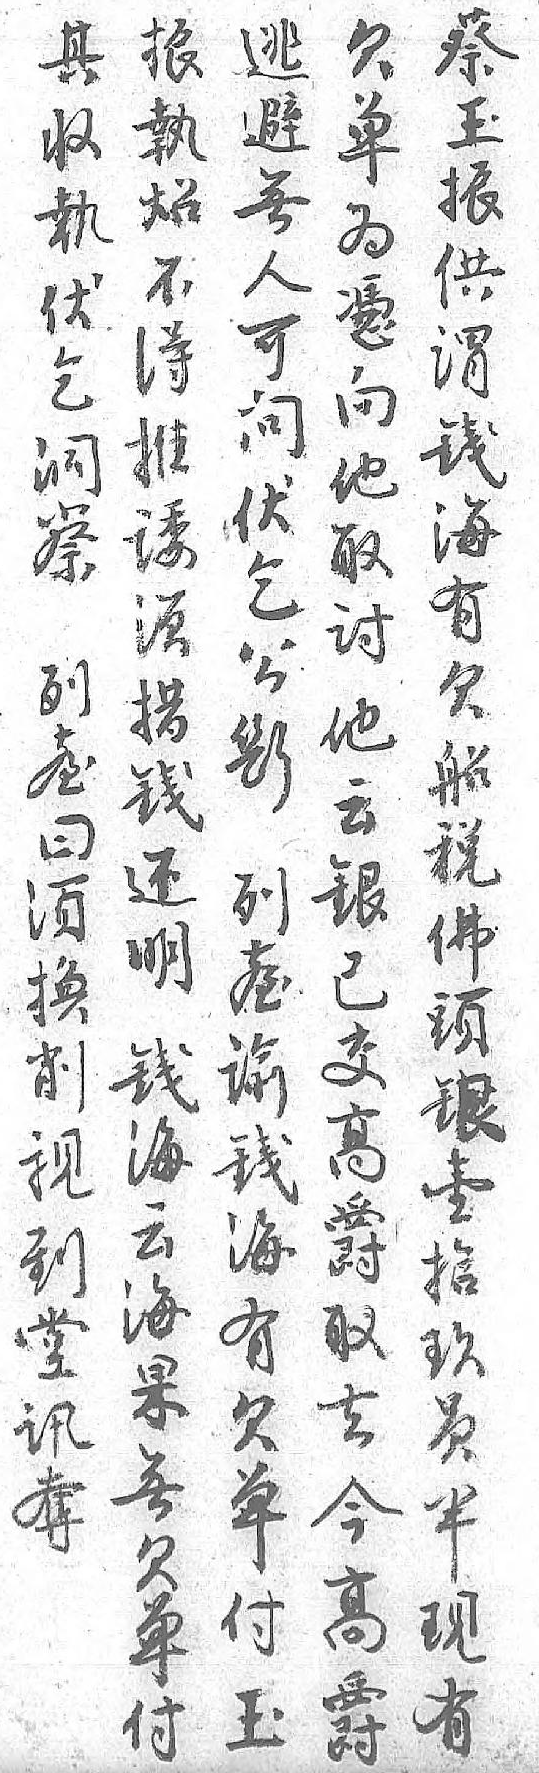 蔡玉振供謂錢海有欠船税佛頭銀壹拾玖員半現有
欠单为憑向他取討他云銀已交高爵取去今高爵
逃避無人可问伏乞公断　列臺諭錢海有欠单付玉
振執炤不得推诿須措錢还明　錢海云海果無欠单付
其收執伏乞洞察　列臺曰須换削親到堂訊奪